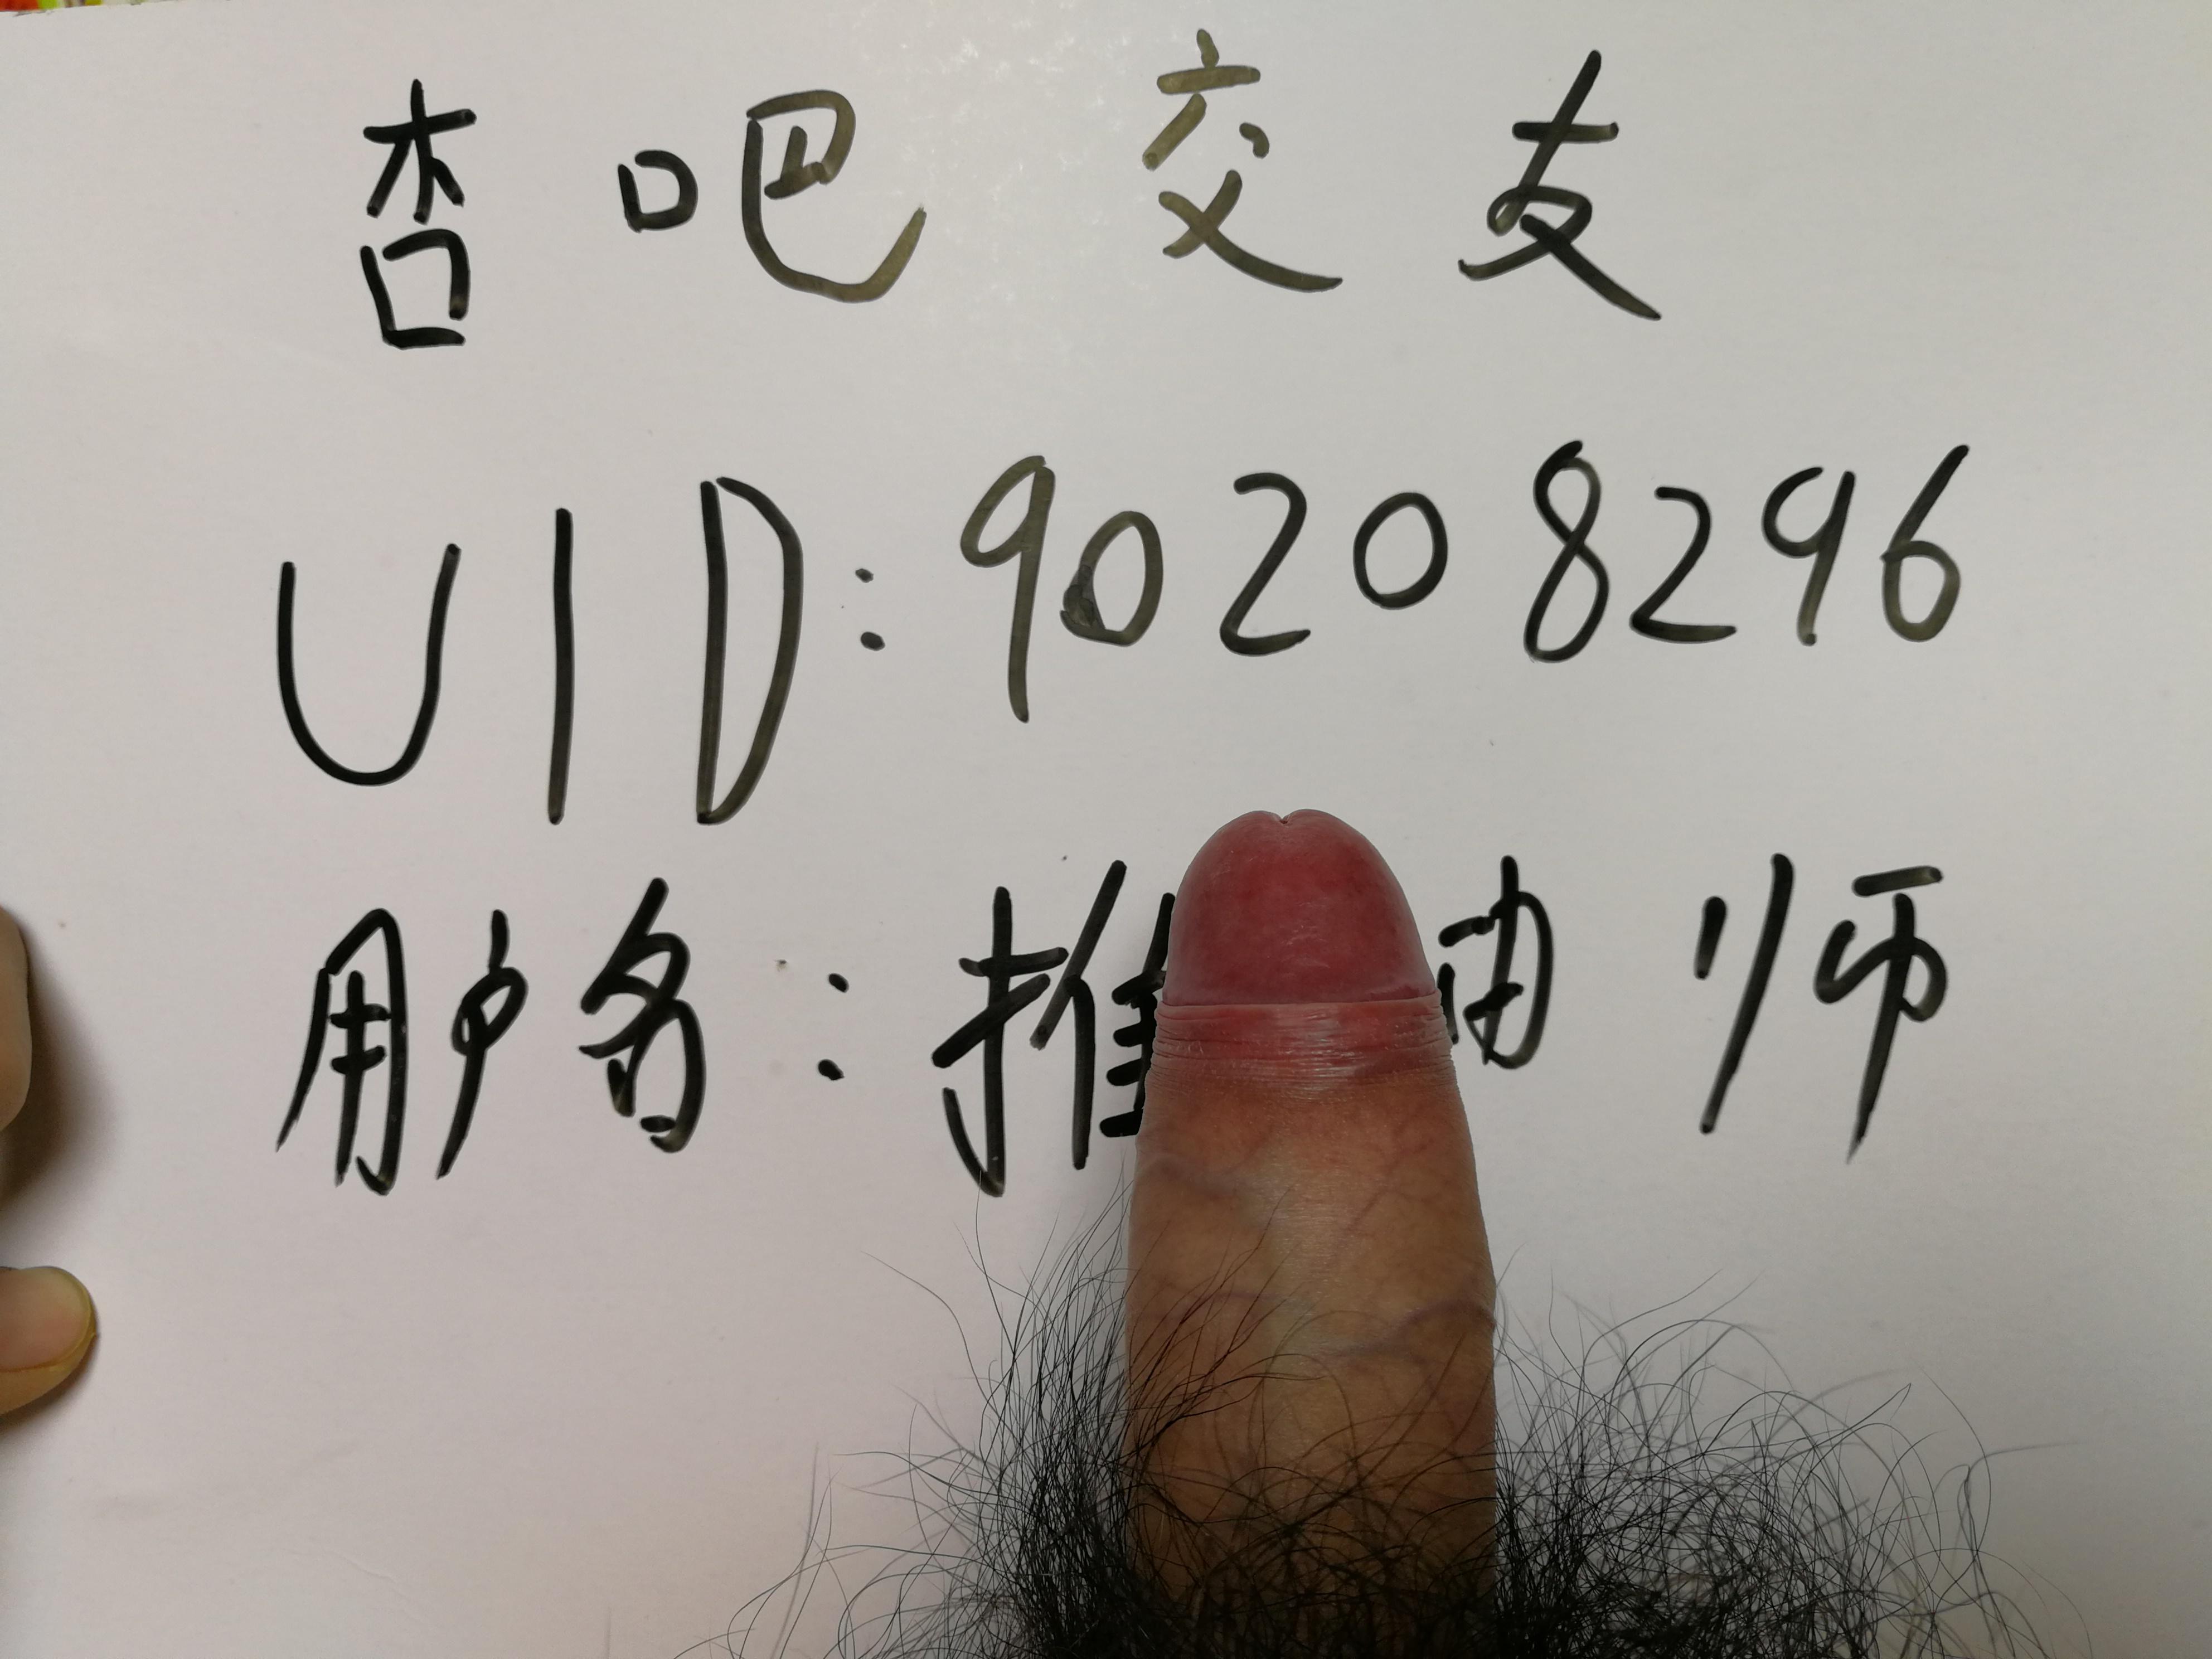 杏吧交友
UID:90208296
用户名：推油师